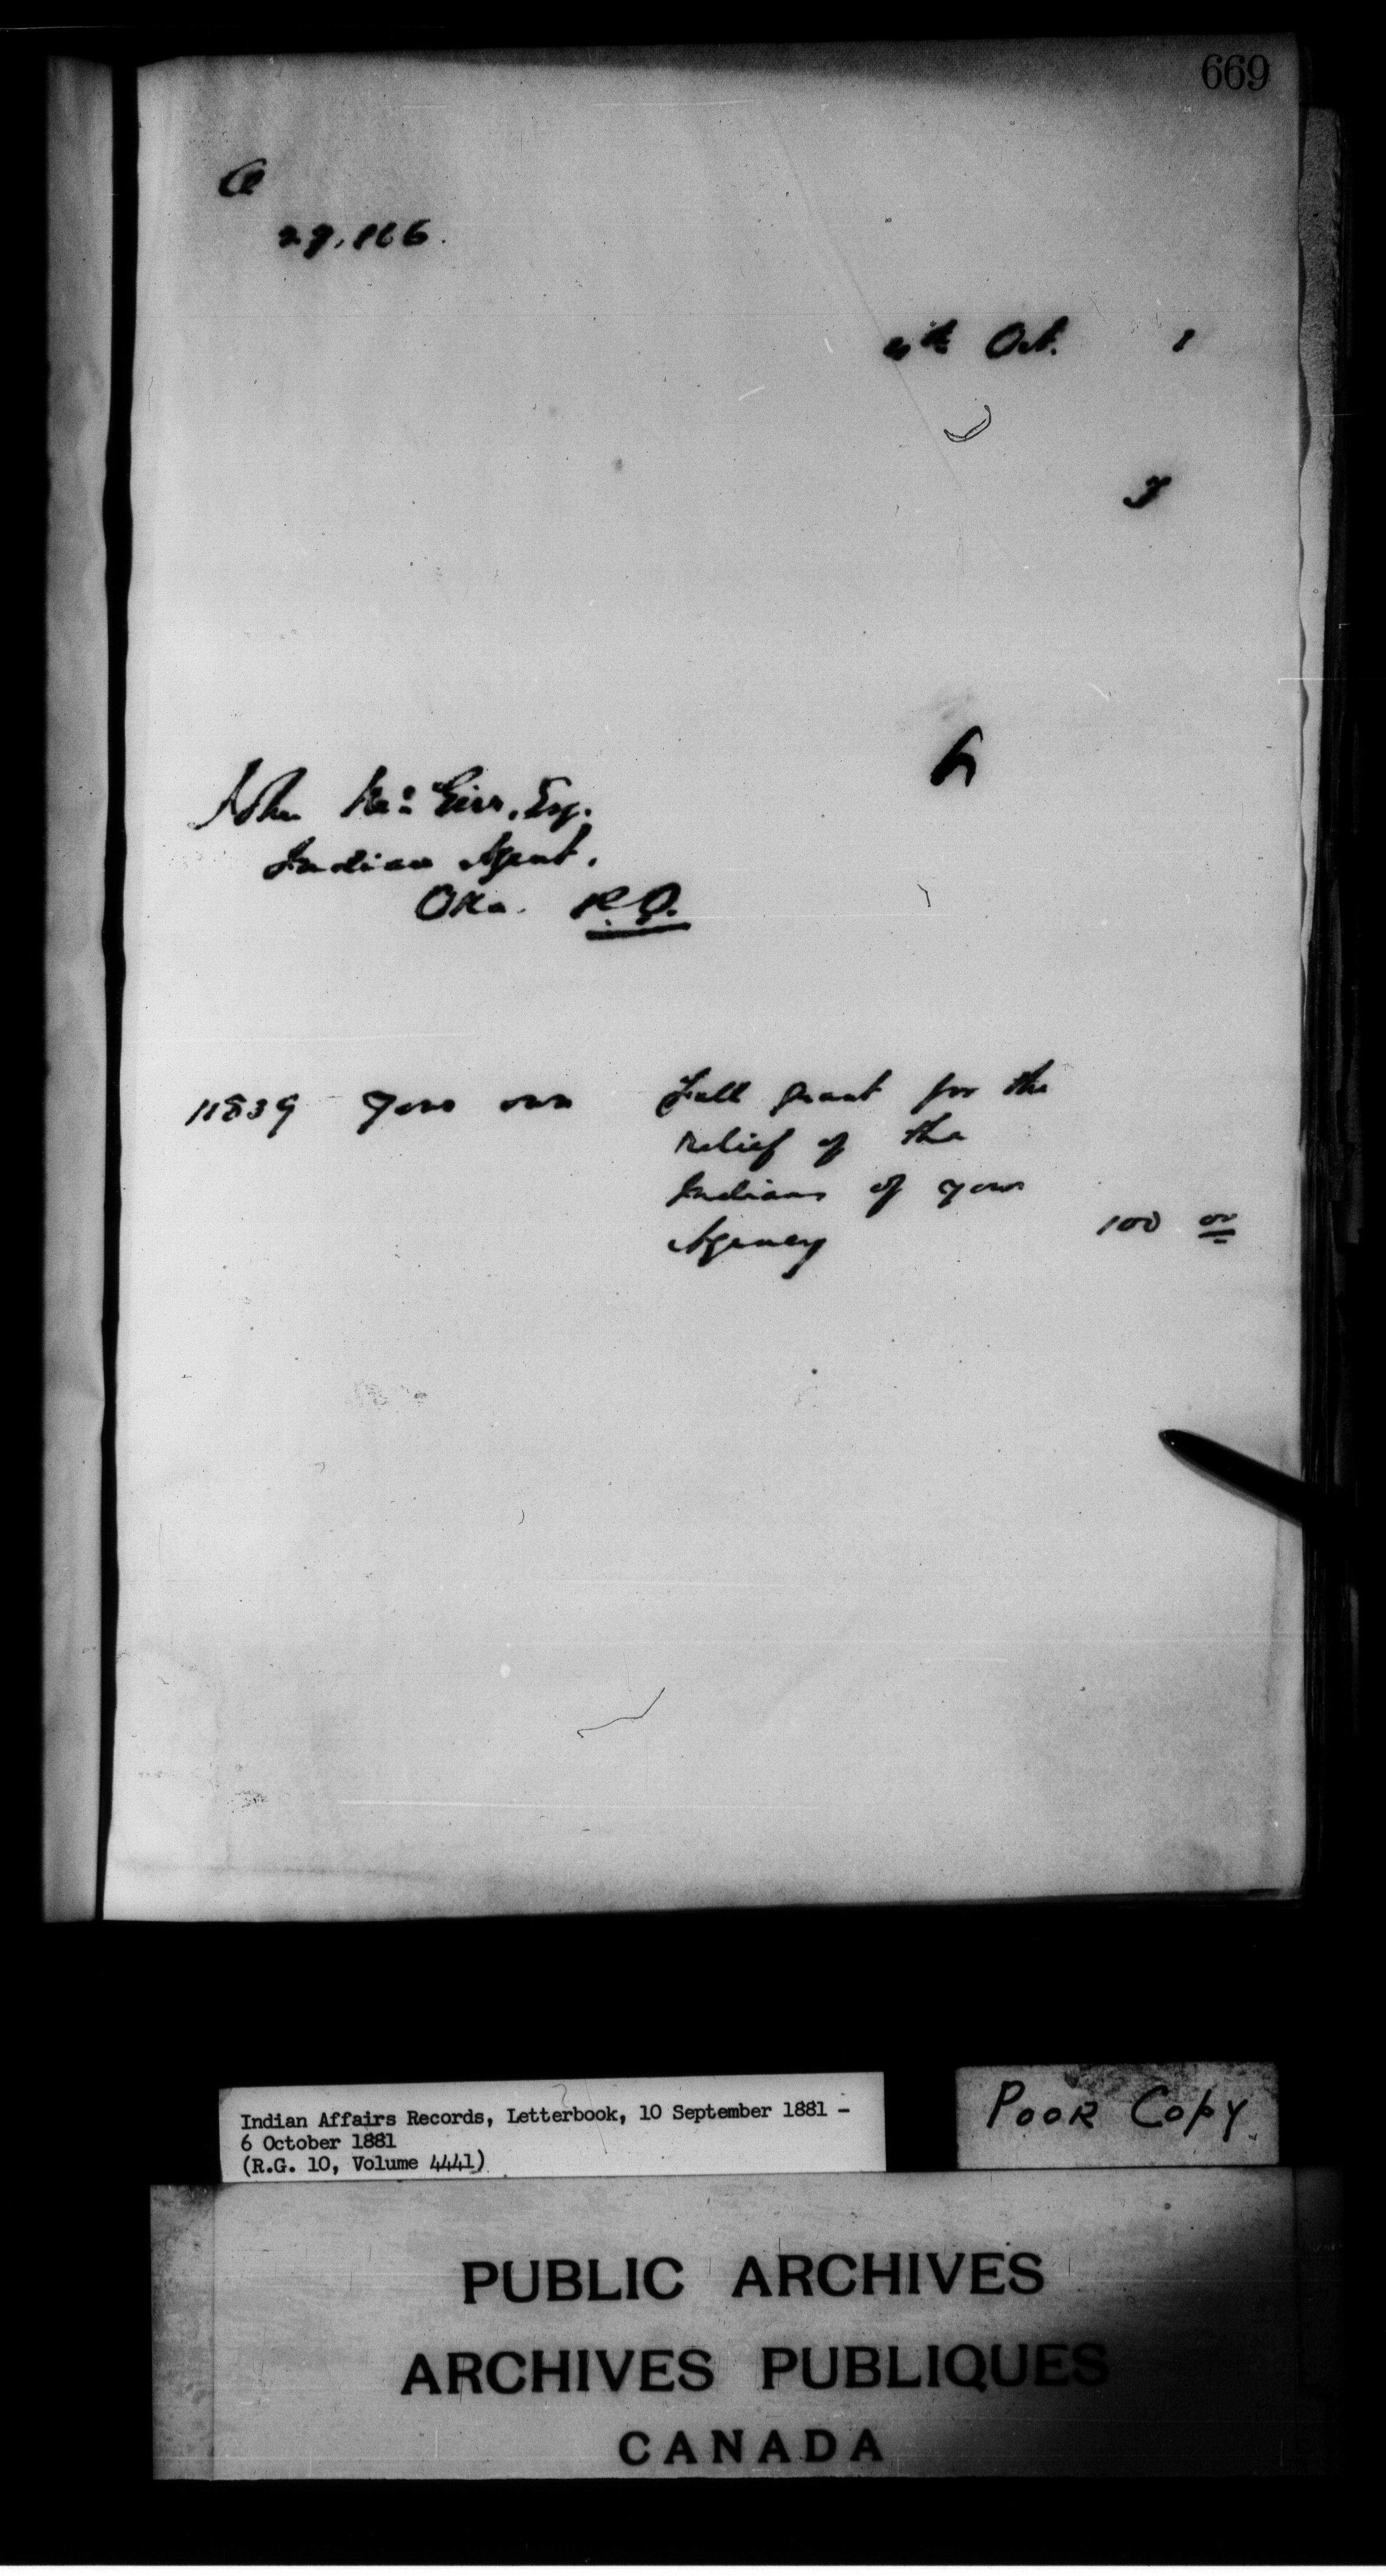 669
a
29,866.
4th Oct. 1
J
h
John McGirr, Esq.
Indian Agent,
Oka. P.Q.
11839 Your own Fall grant for the
relief of the
Indians of your
Agency 100 00
Indian Affairs Records, Letterbook, 10 September 1881 -
6 October 1881
(R.G. 10, Volume 4441)
POOR COPY
PUBLIC ARCHIVES
ARCHIVES PUBLIQUES
CANADA